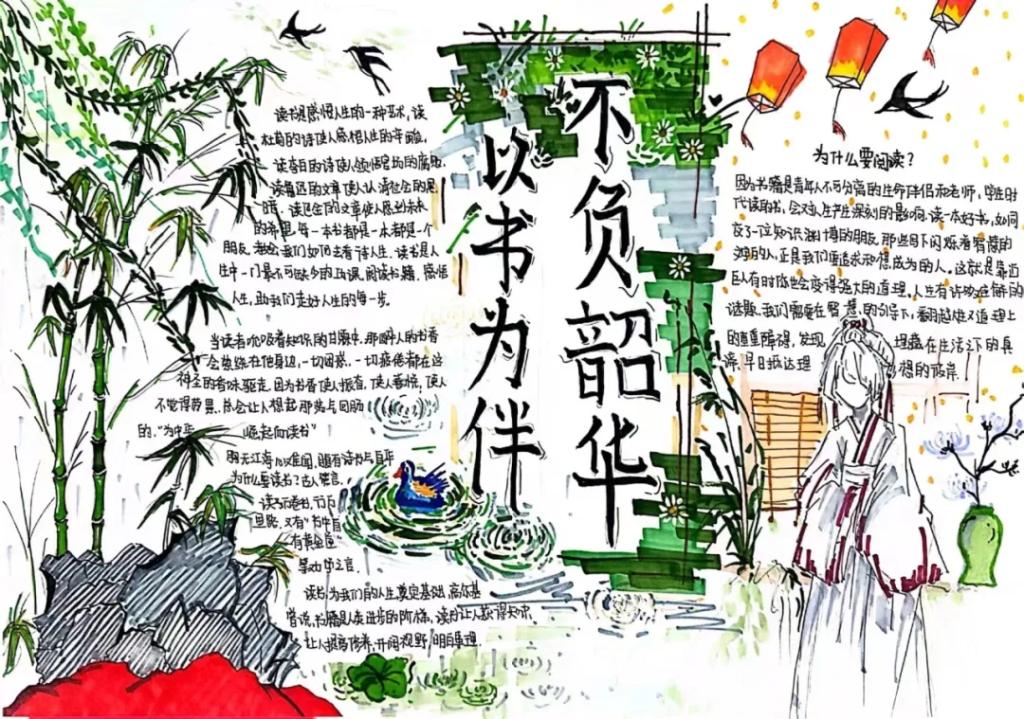 不负韶华
以书为伴
读书是感悟人生的一种艺术,读
杜甫的诗使人感悟人生的辛酸,
读李白的诗使人领悟官场的腐败,
读鲁迅的文章使人认清社会的黑
暗,读巴金的文章使人感到未来
的希望,每一本书都是一本都是一个
朋友,教会我们如何去看待人生,读书是人
生中一门最不可缺少的功课,阅读书籍,感悟
人生,助我们走好人生的每一步。
当读者吮吸着知识的甘露中,那醉人的书香
会萦绕在他身边,一切困惑、一切疲倦都在这
神会的奇妹驱走,因为书香使人振奋,使人香悦,使人
不觉得劳累,总会让人想起那荡气回肠
的,“为中华 崛起而读书”
胸无江海心难阔,腹有诗书气自华
为什么要读书?古人常言,
读万卷书,行万
里路,又有“书中自
有黄金屋”
等劝学之言,
读书为我们的人生奠定基础,高尔基
曾说,书籍是人类进步的阶梯,读书让人获得知识,
让人提高修养,开阔视野,明白真理.
为什么要阅读?
因为书籍是青年人不可分离的生命伴侣和老师,学生时
代读的书,会对人生产生深刻的影响,读一本好书,如同
交了一位知识渊博的朋友,那些书下闪烁着智慧的
鸿的人,正是我们要追求和想成为的人。这就是靠近
巨人有时你也会变得强大的道理。人生有许多难解的
谜题,我们需要在智慧的引导下,翻越生又道理上
的重重障碍,发现 埋藏在生活之下的真
谛,早日抵达理 想的彼岸.